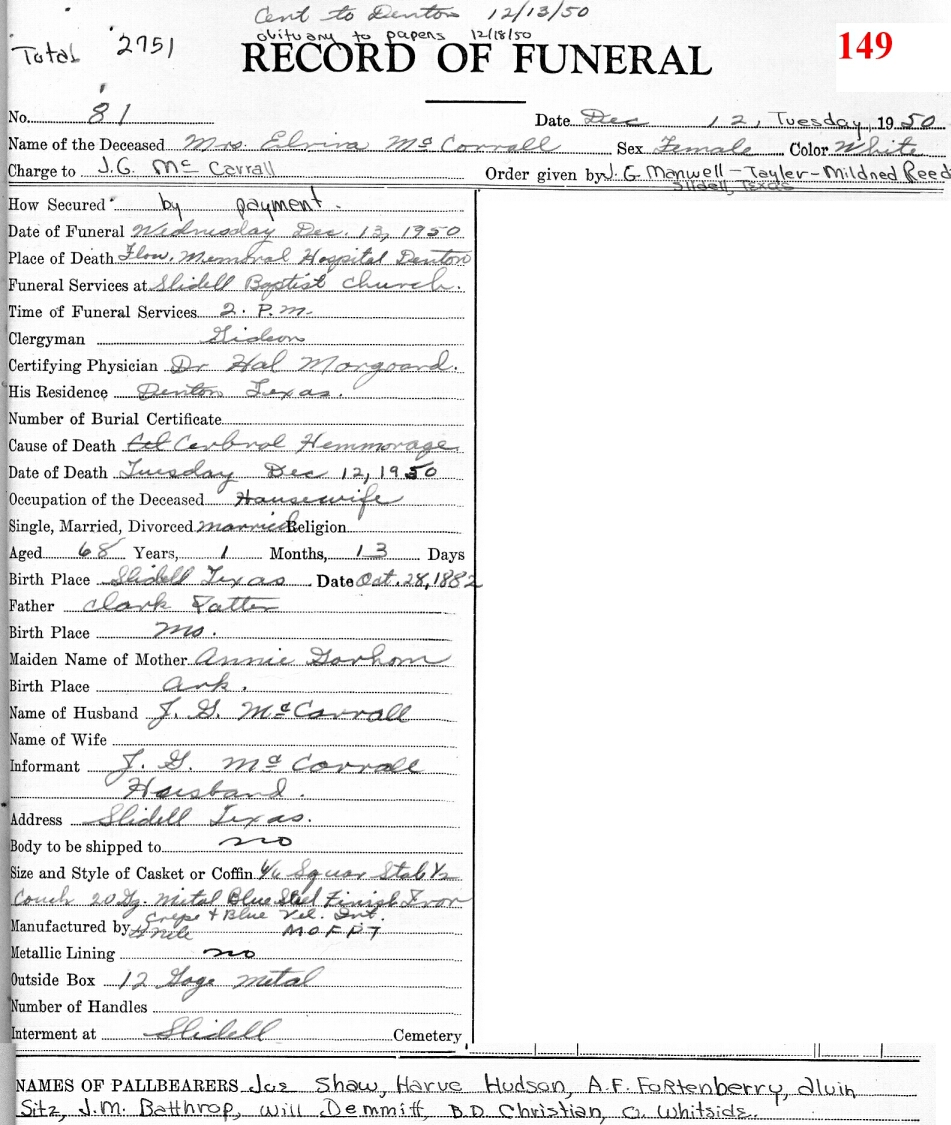 Cent to Denton 12/13/50
obituary to papers 12/18/50
Total 2751
149
RECORD OF FUNERAL
No. 81 Date Dec 12, Tuesday, 1950
Name of the Deceased Mrs. Elvira McCarrall Sex Female Color White
Charge to J.G. McCarrall Order given by J.G. Manwell-Tayler-Mildned Reed
Slidell, Texas
How Secured by payment.
Date of Funeral Wednesday Dec. 13, 1950
Place of Death Flow. Memoral Hospital Denton
Funeral Services at Slidell Baptist Church.
Time of Funeral Services 2. P.m.
Clergyman Gideon
Certifying Physician Dr Hal Norgaard.
His Residence Denton Texas.
Number of Burial Certificate
Cause of Death Cerbral Hemmorage
Date of Death Tuesday Dec 12, 1950
Occupation of the Deceased Housewife
Single, Married, Divorced married Religion
Aged 68 Years, 1 Months, 13 Days
Birth Place Slidell Texas Date Oct. 28, 1882
Father Clark Patten
Birth Place Mo.
Maiden Name of Mother Annie Gorham
Birth Place Ark.
Name of Husband J. G. McCarrall
Name of Wife
Informant J. G. McCarrall
Husband.
Address Slidell Texas.
Body to be shipped to no
Size and Style of Casket or Coffin 6/6 Squar Stab ½
Couch 20 Gg. metal Blue Steel Finish Ivor
Crepe + Blue Vel. Int.
Manufactured by
Metallic Lining no
Outside Box 12 Gage metal
Number of Handles
Interment at Slidell Cemetery
NAMES OF PALLBEARERS Jas Shaw, Harve Hudson, A.F. Fortenberry, Alvin
Sitz, J.M. Batthrop, Will Demmitt, B.D. Christian, O. Whitside.